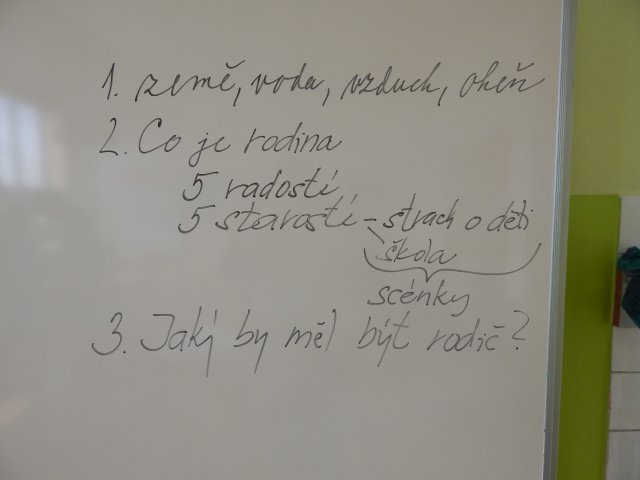 1. země, voda, vzduch, oheň
2. Co je rodina
5 radostí
5 starostí - strach o děti
škola
scénky
3. Jaký by měl být rodič?